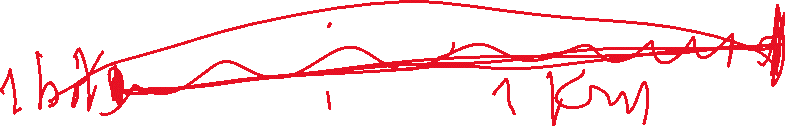 1 bits 1 Km